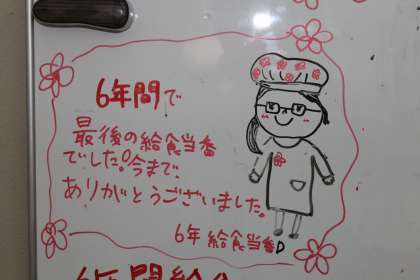 6年間で
最後の給食当番
でした。今まで
ありがとうございました。
6年 給食当番D
6年間給食